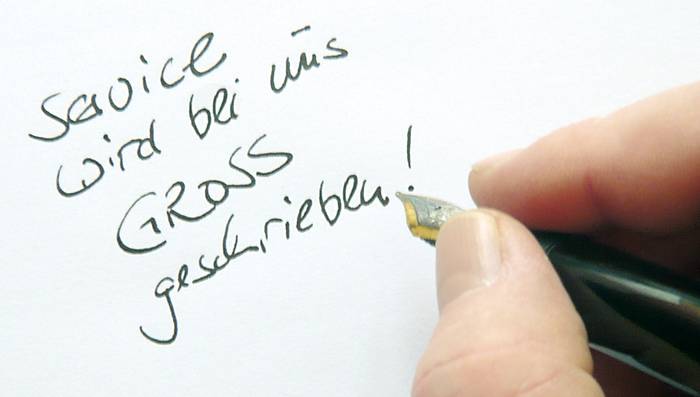 Service
wird bei uns
GROSS
geschrieben!